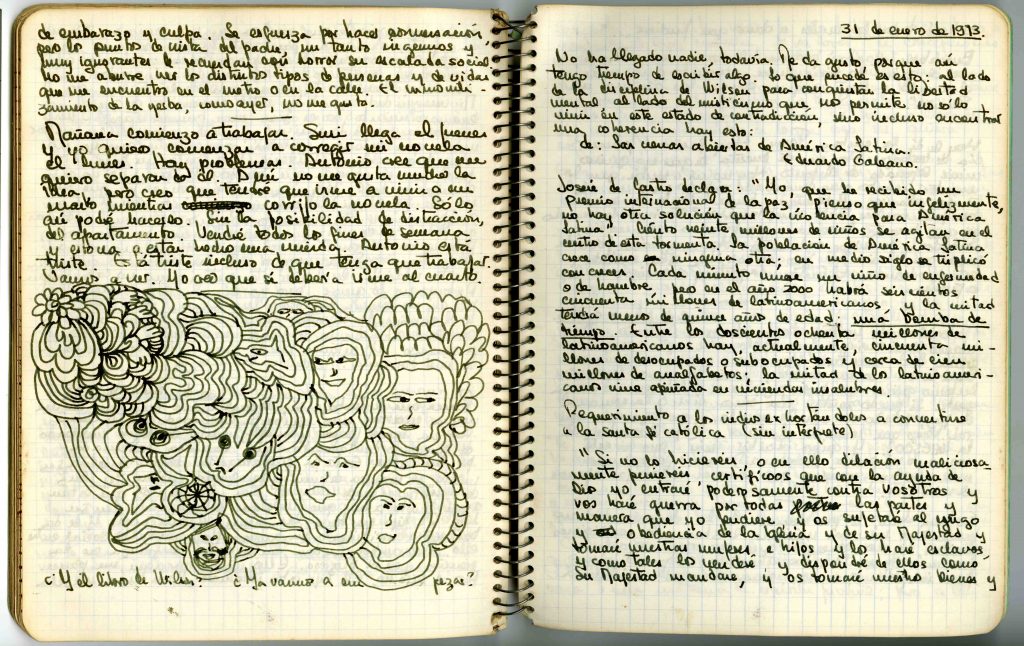 de embarazo y culpa. Se esfuerza por hacer conversación,
pero los puntos de vista del padre, un tanto ingenuos y
muy ignorantes le recuerdan con horror su escalada social
no me aburre ver los distintos tipos de personas y de vidas
que me encuentro en el metro o en la calle. El
de la yerba, como ayer, no me gusta.
Mañana comienzo a trabajar. llega el jueves
y yo quiero comenzar a corregir mi novela
el lunes. Hay problemas. Antonio cree que me
quiero separar de él. A mí no me gusta mucho la
idea, pero creo que tendré que irme a vivir a un
cuarto mientras corrijo la novela. Sólo
así podré hacerlo. Sin la posibilidad de distracción,
del apartamento. Vendré todos los fines de semana
y Antonio está
triste. Está triste incluso de que tenga que trabajar.
Vamos a ver. Yo creo que sí debería irme al cuarto.
¿Y el libro de ¿Ya vamos a em pezar?
31 de enero de 1973.
No ha llegado nadie, todavía. Me da gusto, porque así
tengo tiempo de escribir algo. Lo que sucede es esto: al lado
de la disciplina de Wilson para conquistar la libertad
mental al lado del misticismo que no permite no sólo
vivir en este estado de contradicción, sino incluso encontrar
una coherencia hay esto:
de: Las venas abiertas de América Latina.
Eduardo Galeano.
Josué de Castro declara: "Yo, que he recibido un
premio internacional de la paz, pienso que infelizmente,
no hay otra solución que la violencia para América
Latina". Ciento veinte millones de niños se agitan en el
centro de esta tormenta. La población de América Latina
crece como ninguna otra; en medio siglo se triplicó
con creces. Cada minuto muere un niño de enfermedad
o de hambre, pero en el año 2000 habrá seiscientos
cincuenta millones de latinoamericanos y la mitad
tendrá menos de quince años de edad: una bomba de
tiempo. Entre los doscientos ochenta millones de
latinoamericanos hay, actualmente, cincuenta mi-
llones de desocupados o subocupados y cerca de cien
millones de analfabetos; la mitad de los latinoameri-
canos vive apiñada en viviendas insalubres.
Requerimiento a los indios exhortándolos a convertirse
a la santa fé católica (sin intérprete)
"Si no lo hiciereis, o en ello dilación maliciosa-
mente pusiereis, certifícoos que con la ayuda de
Dios yo entraré poderosamente contra vosotros y
vos haré guerra por todas las partes y
manera que yo pudiere, y os sujetaré al yugo
y obediencia de la Iglesia y de su Majestad y
tomaré vuestras mujeres e hijos y los haré esclavos,
y como tales los venderé, y dispondré de ellos como
su Majestad mandare, y os tomaré vuestros bienes y